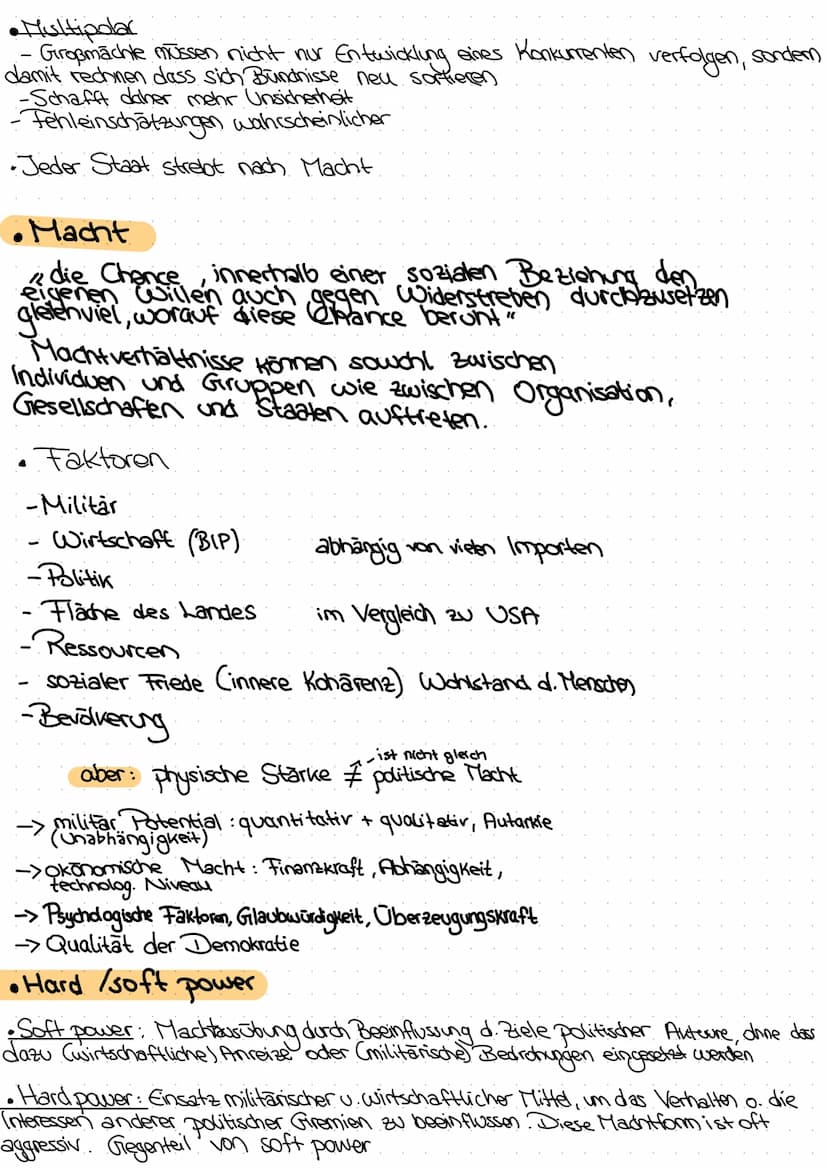 • Multipolar
- Großmächte müssen nicht nur Entwicklung eines Konkurrenten verfolgen, sondern
damit rechnen dass sich Bündnisse neu sortieren
- Schafft daher mehr Unsicherheit
- Fehleinschätzungen wahrscheinlicher
• Jeder Staat strebt nach Macht
• Macht
„ die Chance, innerhalb einer sozialen Beziehung den
eigenen Willen auch gegen Widerstreben durchzusetzen
gleichviel, worauf diese Chance beruht"
Machtverhältnisse können sowohl zwischen
Individuen und Gruppen wie zwischen Organisation,
Gesellschaften und Staaten auftreten.
• Faktoren
- Militär
- Wirtschaft (BIP) abhängig von vielen Importen
- Politik
- Fläche des Landes im Vergleich zu USA
- Ressourcen
- sozialer Friede (innere Kohärenz) Wohlstand d. Menschen
- Bevölkerung
- ist nicht gleich
aber: physische Stärke ≠ politische Macht
-> militär Potential : quantitativ + qualitativ, Autarkie
(Unabhängigkeit)
-> ökonomische Macht : Finanzkraft, Abhängigkeit,
technolog. Niveau
-> Psychologische Faktoren, Glaubwürdigkeit, Überzeugungskraft
-> Qualität der Demokratie
• Hard /soft power
• Soft power : Machtausübung durch Beeinflussung d. Ziele politischer Auteure, ohne das
dazu (wirtschaftliche) Anreize oder (militärische) Bedrohungen eingesetzt werden
• Hard power : Einsatz militärischer u. wirtschaftlicher Mittel, um das Verhalten o. die
Interessen anderer politischer Gremien zu beeinflussen. Diese Machtform ist oft
aggressiv. Gegenteil von soft power